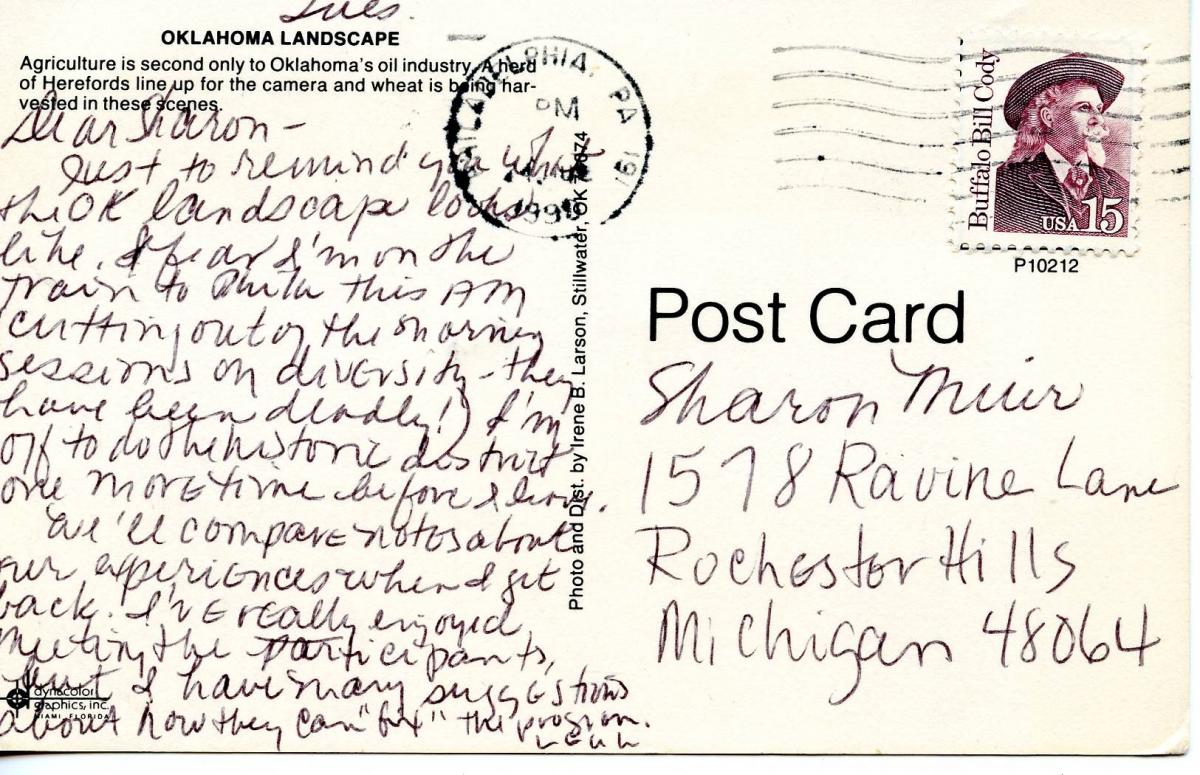 Tues.
OKLAHOMA LANDSCAPE
Agriculture is second only to Oklahoma's oil industry. A herd
of Herefords line up for the camera and wheat is being har-
vested in these scenes.
Dear Sharon -
Just to remind you what
the OK landscape looks
like. I fear I'm on the
train to Phila this AM
(cutting out of the morning
sessions on diversity - they
have been deadly!) I'm
off to do the historic district
one more time before I leave.
We'll compare notes about
our experiences when I get
back. I've really enjoyed
meeting the participants,
but I have many suggestions
about how they can "fix" the program.
dynacolor
graphics, inc.
MIAMI, FLORIDA
Photo and Dist. by Irene B. Larson, Stillwater, OK 74074
PHILADELPHIA, PA 191
PM
Buffalo Bill Cody
USA 15
P10212
Post Card
Sharon Muir
1578 Ravine Lane
Rochester Hills
Michigan 48064